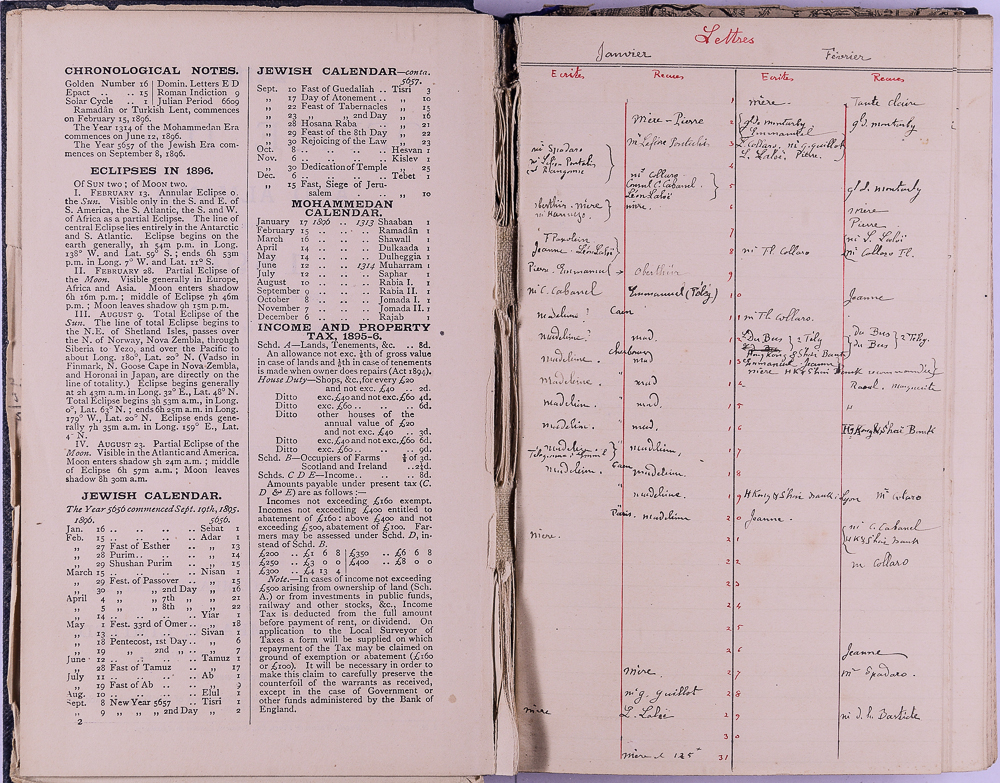 CHRONOLOGICAL NOTES.
Golden Number 16 | Domin. Letters E D
Epact .. .. 15 | Roman Indiction 9
Solar Cycle .. 1 | Julian Period 6609
Ramadân or Turkish Lent, commences
on February 15, 1896.
The Year 1314 of the Mohammedan Era
commences on June 12, 1896.
The Year 5657 of the Jewish Era com-
mences on September 8, 1896.
ECLIPSES IN 1896.
Of SUN two ; of MOON two.
I. FEBRUARY 13. Annular Eclipse o.
the Sun. Visible only in the S. and E. of
S. America, the S. Atlantic, the S. and W.
of Africa as a partial Eclipse. The line of
central Eclipse lies entirely in the Antarctic
and S. Atlantic. Eclipse begins on the
earth generally, 1h 54m p.m. in Long.
138° W. and Lat. 59° S. ; ends 6h 53m
p.m. in Long. 7° W. and Lat. 21° S.
II. FEBRUARY 28. Partial Eclipse of
the Moon. Visible generally in Europe,
Africa and Asia. Moon enters shadow
6h 16m p.m. ; middle of Eclipse 7h 46m
p.m. ; Moon leaves shadow 9h 15m p.m.
III. AUGUST 9. Total Eclipse of the
Sun. The line of total Eclipse begins to
the N.E. of Shetland Isles, passes over
the N. of Norway, Nova Zembla, through
Siberia to Yezo, and over the Pacific to
about Long. 180°, Lat. 20° N. (Vadso in
Finmark, N. Goose Cape in Nova Zembla,
and Horonai in Japan, are directly on the
line of totality.) Eclipse begins generally
at 2h 43m a.m. in Long. 32° E., Lat. 48° N.
Total Eclipse begins 3h 53m a.m., in Long.
0°, Lat. 63° N. ; ends 6h 25m a.m. in Long.
179° W., Lat. 20° N. Eclipse ends gene-
rally 7h 35m a.m. in Long. 159° E., Lat.
4° N.
IV. AUGUST 23. Partial Eclipse of the
Moon. Visible in the Atlantic and America.
Moon enters shadow 5h 24m a.m. ; middle
of Eclipse 6h 57m a.m. ; Moon leaves
shadow 8h 30m a.m.
JEWISH CALENDAR.
The Year 5656 commenced Sept. 19th, 1895.
1896. 5656.
Jan. 16 .. .. .. .. Sebat 1
Feb. 15 .. .. .. .. Adar 1
„ 27 Fast of Esther .. „ 13
„ 28 Purim.. .. .. „ 14
„ 29 Shushan Purim .. „ 15
March 15 .. .. .. .. Nisan 1
„ 29 Fest. of Passover .. „ 15
„ 30 „ „ 2nd Day „ 16
April 4 „ „ 7th „ „ 21
„ 5 „ „ 8th „ „ 22
„ 14 .. .. .. .. Yiar 1
May 1 Fest. 33rd of Omer .. „ 18
„ 13 .. .. .. .. Sivan 1
„ 18 Pentecost, 1st Day .. „ 6
„ 19 „ 2nd „ .. „ 7
June 12 .. .. .. .. Tamuz 1
„ 28 Fast of Tamuz .. „ 17
July 11 .. .. .. .. Ab 1
„ 19 Fast of Ab .. .. „ 9
Aug. 10 .. .. .. .. Elul 1
Sept. 8 New Year 5657 .. Tisri 1
„ 9 „ „ „ 2nd Day „ 2
2
JEWISH CALENDAR—contd.
5657.
Sept. 10 Fast of Guedaliah .. Tisri 3
„ 17 Day of Atonement .. „ 10
„ 22 Feast of Tabernacles „ 15
„ 23 „ „ 2nd Day „ 16
„ 28 Hosana Raba .. „ 21
„ 29 Feast of the 8th Day „ 22
„ 30 Rejoicing of the Law „ 23
Oct. 8 .. .. .. .. Hesvan 1
Nov. 6 .. .. .. .. Kislev 1
„ 30 Dedication of Temple „ 25
Dec. 6 .. .. .. .. Tebet 1
„ 15 Fast, Siege of Jeru-
salem .. .. „ 10
MOHAMMEDAN
CALENDAR.
January 17 1896 .. 1313 Shaaban 1
February 15 .. .. .. Ramadân 1
March 16 .. .. .. Shawall 1
April 14 .. .. .. Dulkaada 1
May 14 .. .. .. Dulheggia 1
June 12 .. .. 1314 Muharran 1
July 12 .. .. .. Saphar 1
August 10 .. .. .. Rabia I. 1
September 9 .. .. .. Rabia II. 1
October 8 .. .. .. Jomada I. 1
November 7 .. .. .. Jomada II. 1
December 6 .. .. .. Rajab 1
INCOME AND PROPERTY
TAX, 1895-6.
Schd. A—Lands, Tenements, &c. .. 8d.
An allowance not exc. ⅛th of gross value
in case of lands and ⅙th in case of tenements
is made when owner does repairs (Act 1894).
House Duty—Shops, &c., for every £20
and not exc. £40 .. 2d.
Ditto exc. £40 and not exc. £60 4d.
Ditto exc. £60 .. .. .. 6d.
Ditto other houses of the
annual value of £20
and not exc. £40 .. 3d.
Ditto exc. £40 and not exc. £60 6d.
Ditto exc. £60 .. .. .. 9d.
Schd. B—Occupiers of Farms ⅜ of 3d.
Scotland and Ireland .. 2¼d.
Schds. C D E—Income.. .. .. 8d.
Amounts payable under present tax (C.
D & E) are as follows :—
Incomes not exceeding £160 exempt.
Incomes not exceeding £400 entitled to
abatement of £160 : above £400 and not
exceeding £500, abatement of £100. Far-
mers may be assessed under Schd. D, in-
stead of Schd. B.
£200 .. £1 6 8 | £350 .. £6 6 8
£250 .. £3 0 0 | £400 .. £8 0 0
£300 .. £4 13 4 |
Note.—In cases of income not exceeding
£500 arising from ownership of land (Sch.
A.) or from investments in public funds,
railway and other stocks, &c., Income
Tax is deducted from the full amount
before payment of rent, or dividend. On
application to the Local Surveyor of
Taxes a form will be supplied on which
repayment of the Tax may be claimed on
ground of exemption or abatement (£160
or £100). It will be necessary in order to
make this claim to carefully preserve the
counterfoil of the warrants as received,
except in the case of Government or
other funds administered by the Bank of
England.
Lettres
Janvier Février
Ecrites Recues Ecrites Recues
1 mère. Tante Claire
Mère - Pierre 2 gl. monturby gl. monturby
Emmanuel
3 Collaro, g. guillot
L. Laloi, Pierre.
Mr Spadaro
4
Mr Collaro
Consul C. Cabanel 5 gl. monturby
Léon Laloi
mère. 6 mère
7 Pierre
L. Laloi
Jeanne - Léon Laloi 8 Mr Th. Collaro Mr Collaro Th.
Pierre, Emmanuel Oberthür 9
Mr C. Cabanel Emmanuel (Töby) 10 Jeanne
madeleine Caen 11 Mr Th Collaro.
madeleine mad. 12 Du Bus 2 Tély Du Bus
Du Bus 2 Télég.
madeleine. Cherbourg mad 13 Hongkong & Shai Bank
Emmanuel Jeanne
mère HK & Shai Bank recommandée
madeleine mad 14 Raoul. Marguerite
madeleine. mad. 15 „
madeleine. mad. 16 H Kong & Shai Bank
madeleine, 17
madeleine. Caen madeleine. 18
madeleine. 19 H Kong & Shai Bank Lyon Mr Collaro
Paris. madeleine 20 Jeanne.
mère. 21 Mr C. Cabanel
HK & Shai Bank
22 m. Collaro
23
24
25
26 Jeanne
mère. 27 Mr Spadaro.
Mr g. guillot 28
mère L. Laloi 29
30
31